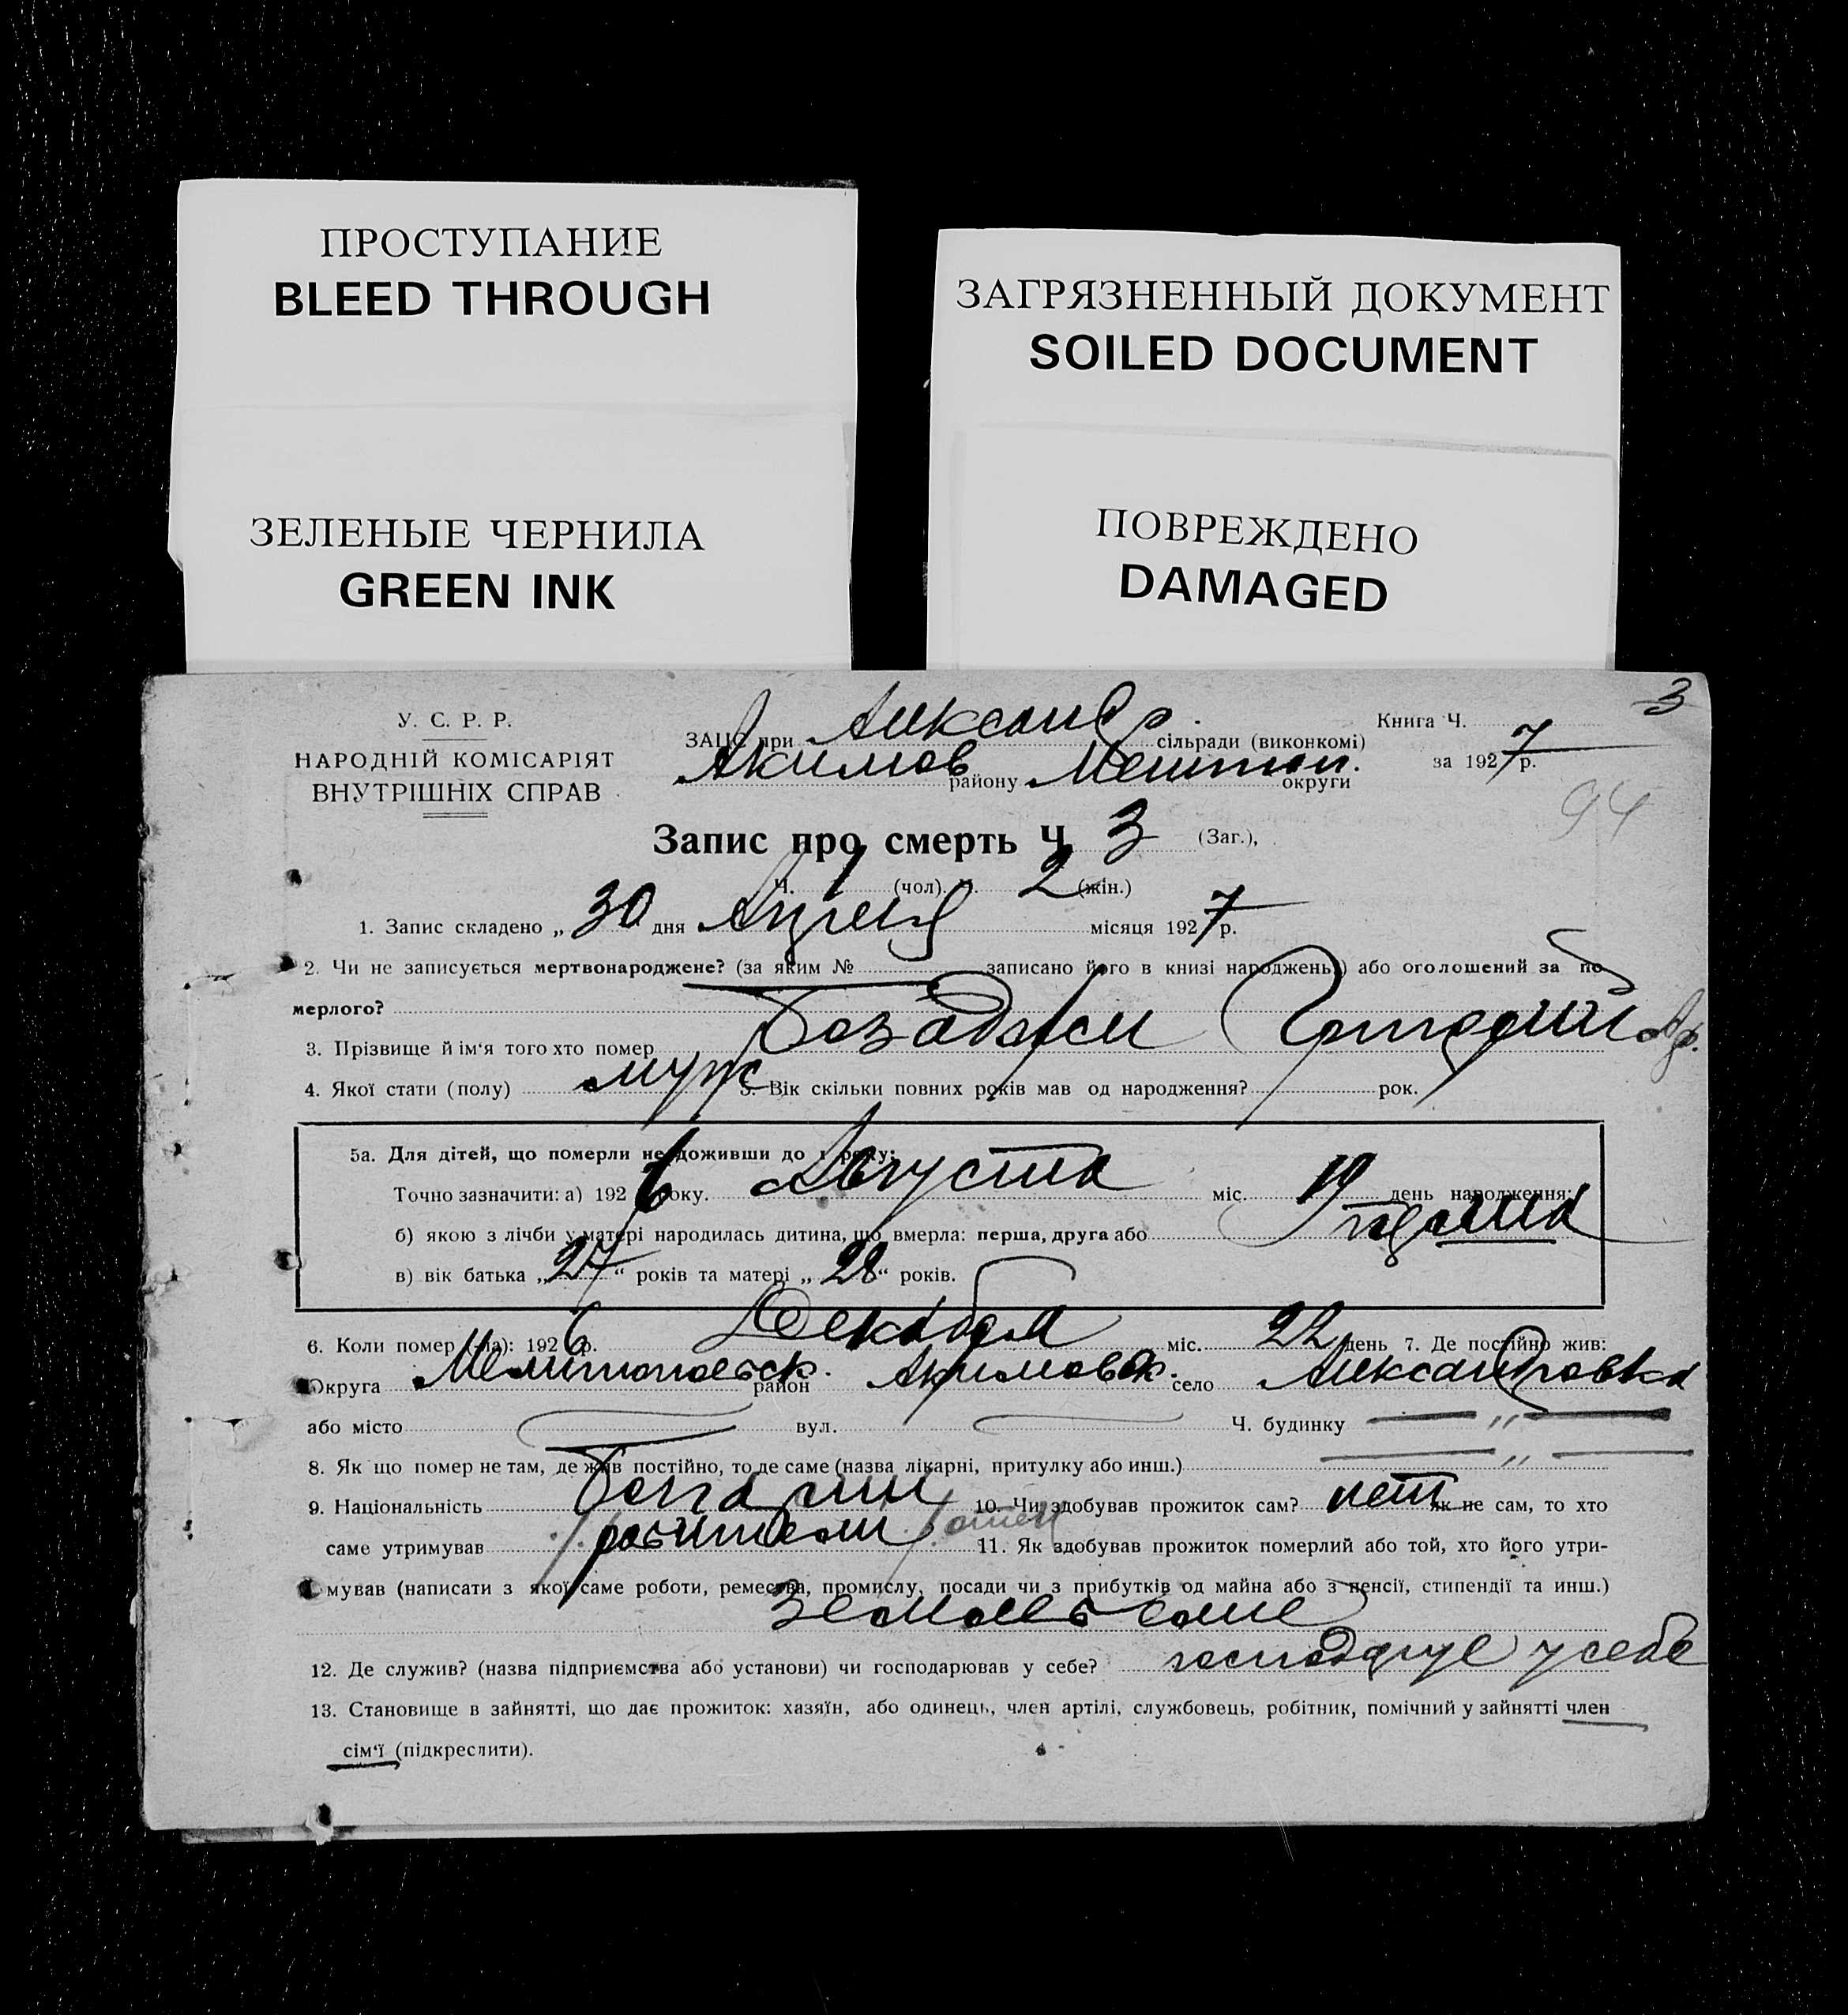 ПРОСТУПАНИЕ
BLEED THROUGH
ЗАГРЯЗНЕННЫЙ ДОКУМЕНТ
SOILED DOCUMENT
ЗЕЛЕНЫЕ ЧЕРНИЛА
GREEN INK
ПОВРЕЖДЕНО
DAMAGED
3
У. С. Р. Р.
НАРОДНІЙ КОМІСАРІЯТ
ВНУТРІШНІХ СПРАВ
ЗАЦС при Александр. сільради (виконкомі)
Акимов району Мелитоп. округи
Книга Ч.
за 1927 р.
94
Запис про смерть Ч 3 (Заг.),
Ч. 1 (чол). Ч. 2 (жін.)
1. Запис складено „ 30 дня Апреля місяця 1927 р.
2. Чи не записується мертвонароджене? (за яким № записано його в книзі народжень) або оголошений за по
мерлого?
3. Прізвище й ім‘я того хто помер Бозаджи Григорий Аф.
4. Якої стати (полу) муж 5. Вік скільки повних років мав од народження? рок.
5а. Для дітей, що померли не доживши до 1 року:
Точно зазначити: а) 1926 року. Августа міс. 19 день народження;
б) якою з лічби у матері народилась дитина, що вмерла: перша, друга або
в) вік батька „ 27 “ років та матері „ 28 “ років.
6. Коли помер (-ла): 1926 р. Декабря міс. 22 день 7. Де постійно жив:
Округа Мелитопольск. район Акимовск. село Александровка
або місто вул. Ч. будинку — „ —
8. Як що помер не там, де жив постійно, то де саме (назва лікарні, притулку або инш.) — „ —
9. Національність Болгарин 10. Чи здобував прожиток сам? нет як не сам, то хто
саме утримував родители отец 11. Як здобував прожиток померлий або той, хто його утри-
мував (написати з якої саме роботи, ремества, промислу, посади чи з прибутків од майна або з пенсії, стипендії та инш.)
12. Де служив? (назва підприємства або установи) чи господарював у себе? господарує у себе
13. Становище в зайнятті, що дає прожиток: хазяїн, або одинець, член артілі, службовець, робітник, помічний у зайнятті член
сім‘ї (підкреслити).